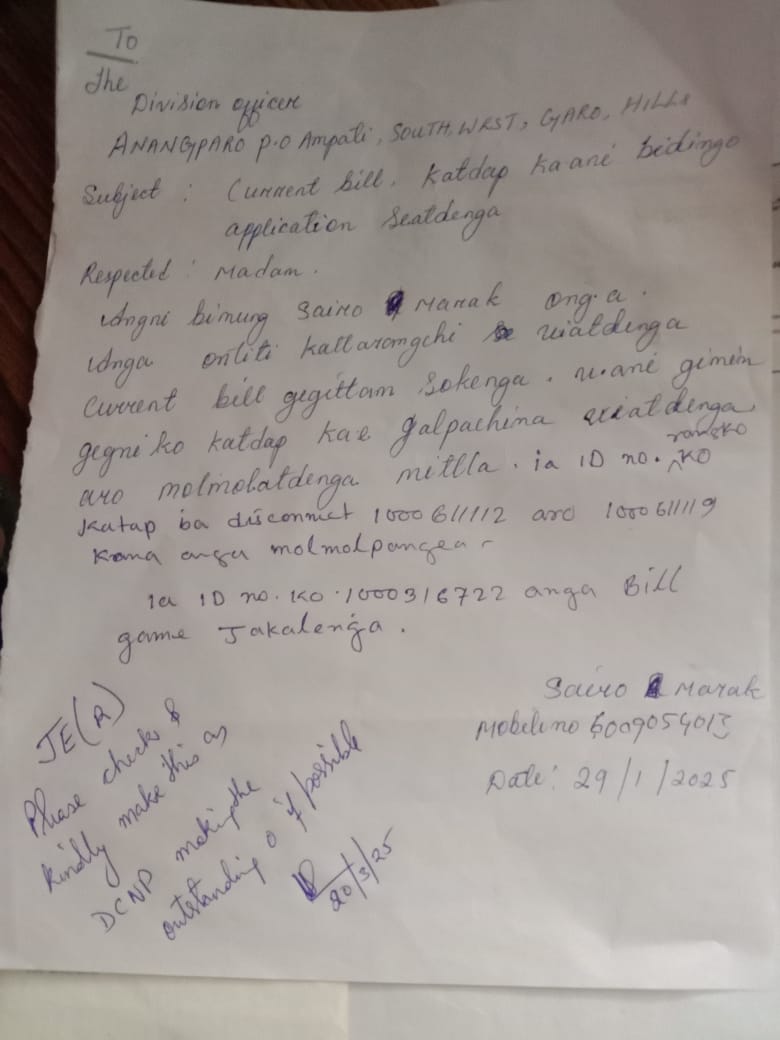 To
The
Division officer
ANANGPARO P.O Ampati, SOUTH, WEST, GARO, HILLS
Subject : Current bill, Katdap kaani bidingo
application seatdenga
Respected : Madam.
Angni bimung Sairo Marak ong.a.
Anga ontiti kattarangchi uiatdenga
Current bill gegittam sokenga. u.ani gimin
gegni ko katdap kae galpachina uiatdenga
aro molmolatdenga mitlla. ia ID no. rangko KO
Katap ba disconnect 1000611112 aro 1000611119
Kana anga molmolpangea -
ia ID no. KO . 1000316722 anga Bill
game Jakalenga.
Sairo Marak
Mobile no 6009054013
Date: 29/1/2025
JE(R)
Please check &
kindly make this as
DCNP making the
outstanding 0 if possible
20/3/25